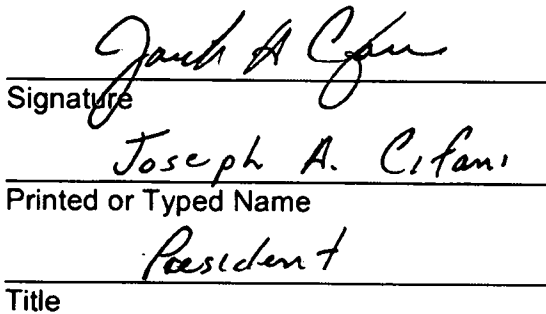 Signature
Joseph A. Cifani
Printed or Typed Name
President
Title